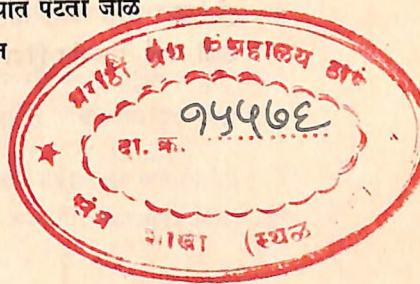 पात पटता जाळ
त
मराठी ग्रंथ संग्रहालय ठाणे
दा. क्र. १५५७६
शाखा (स्थळ